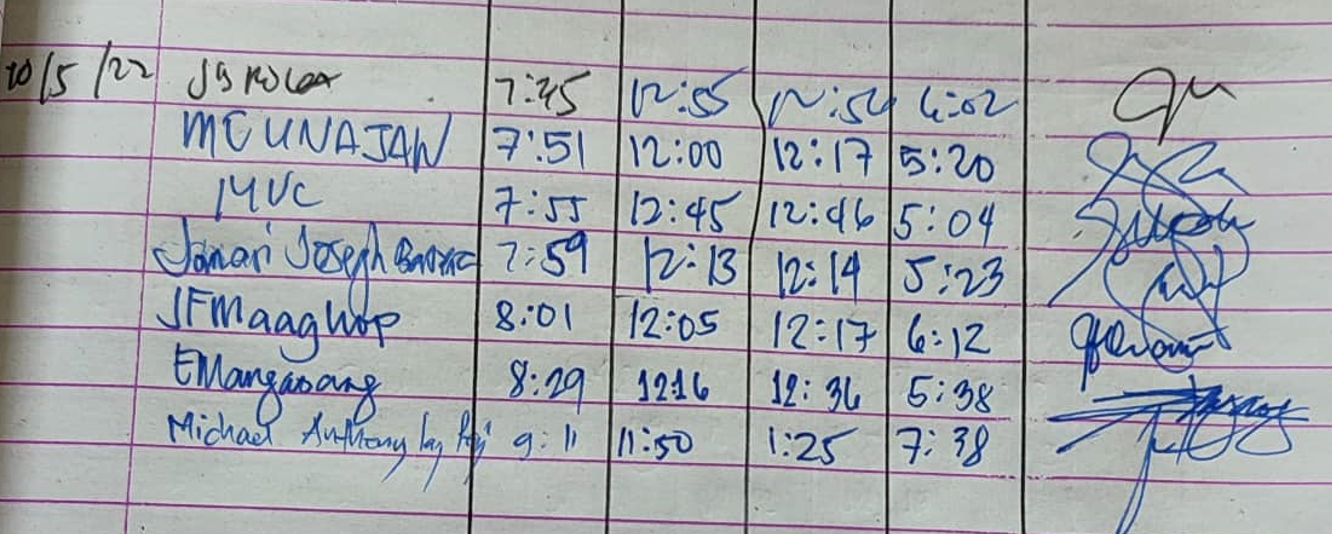 10/5/22 7:45 12:55 12:56 6:02
MCUNAJAN 7:51 12:00 12:17 5:20
MVC 7:55 12:45 12:46 5:04
Jomari Joseph 7:59 12:13 12:14 5:23
JFMaaghop 8:01 12:05 12:17 6:12
EMangasang 8:29 12:16 12:36 5:38
Michael Anthony 9:11 11:50 1:25 7:38